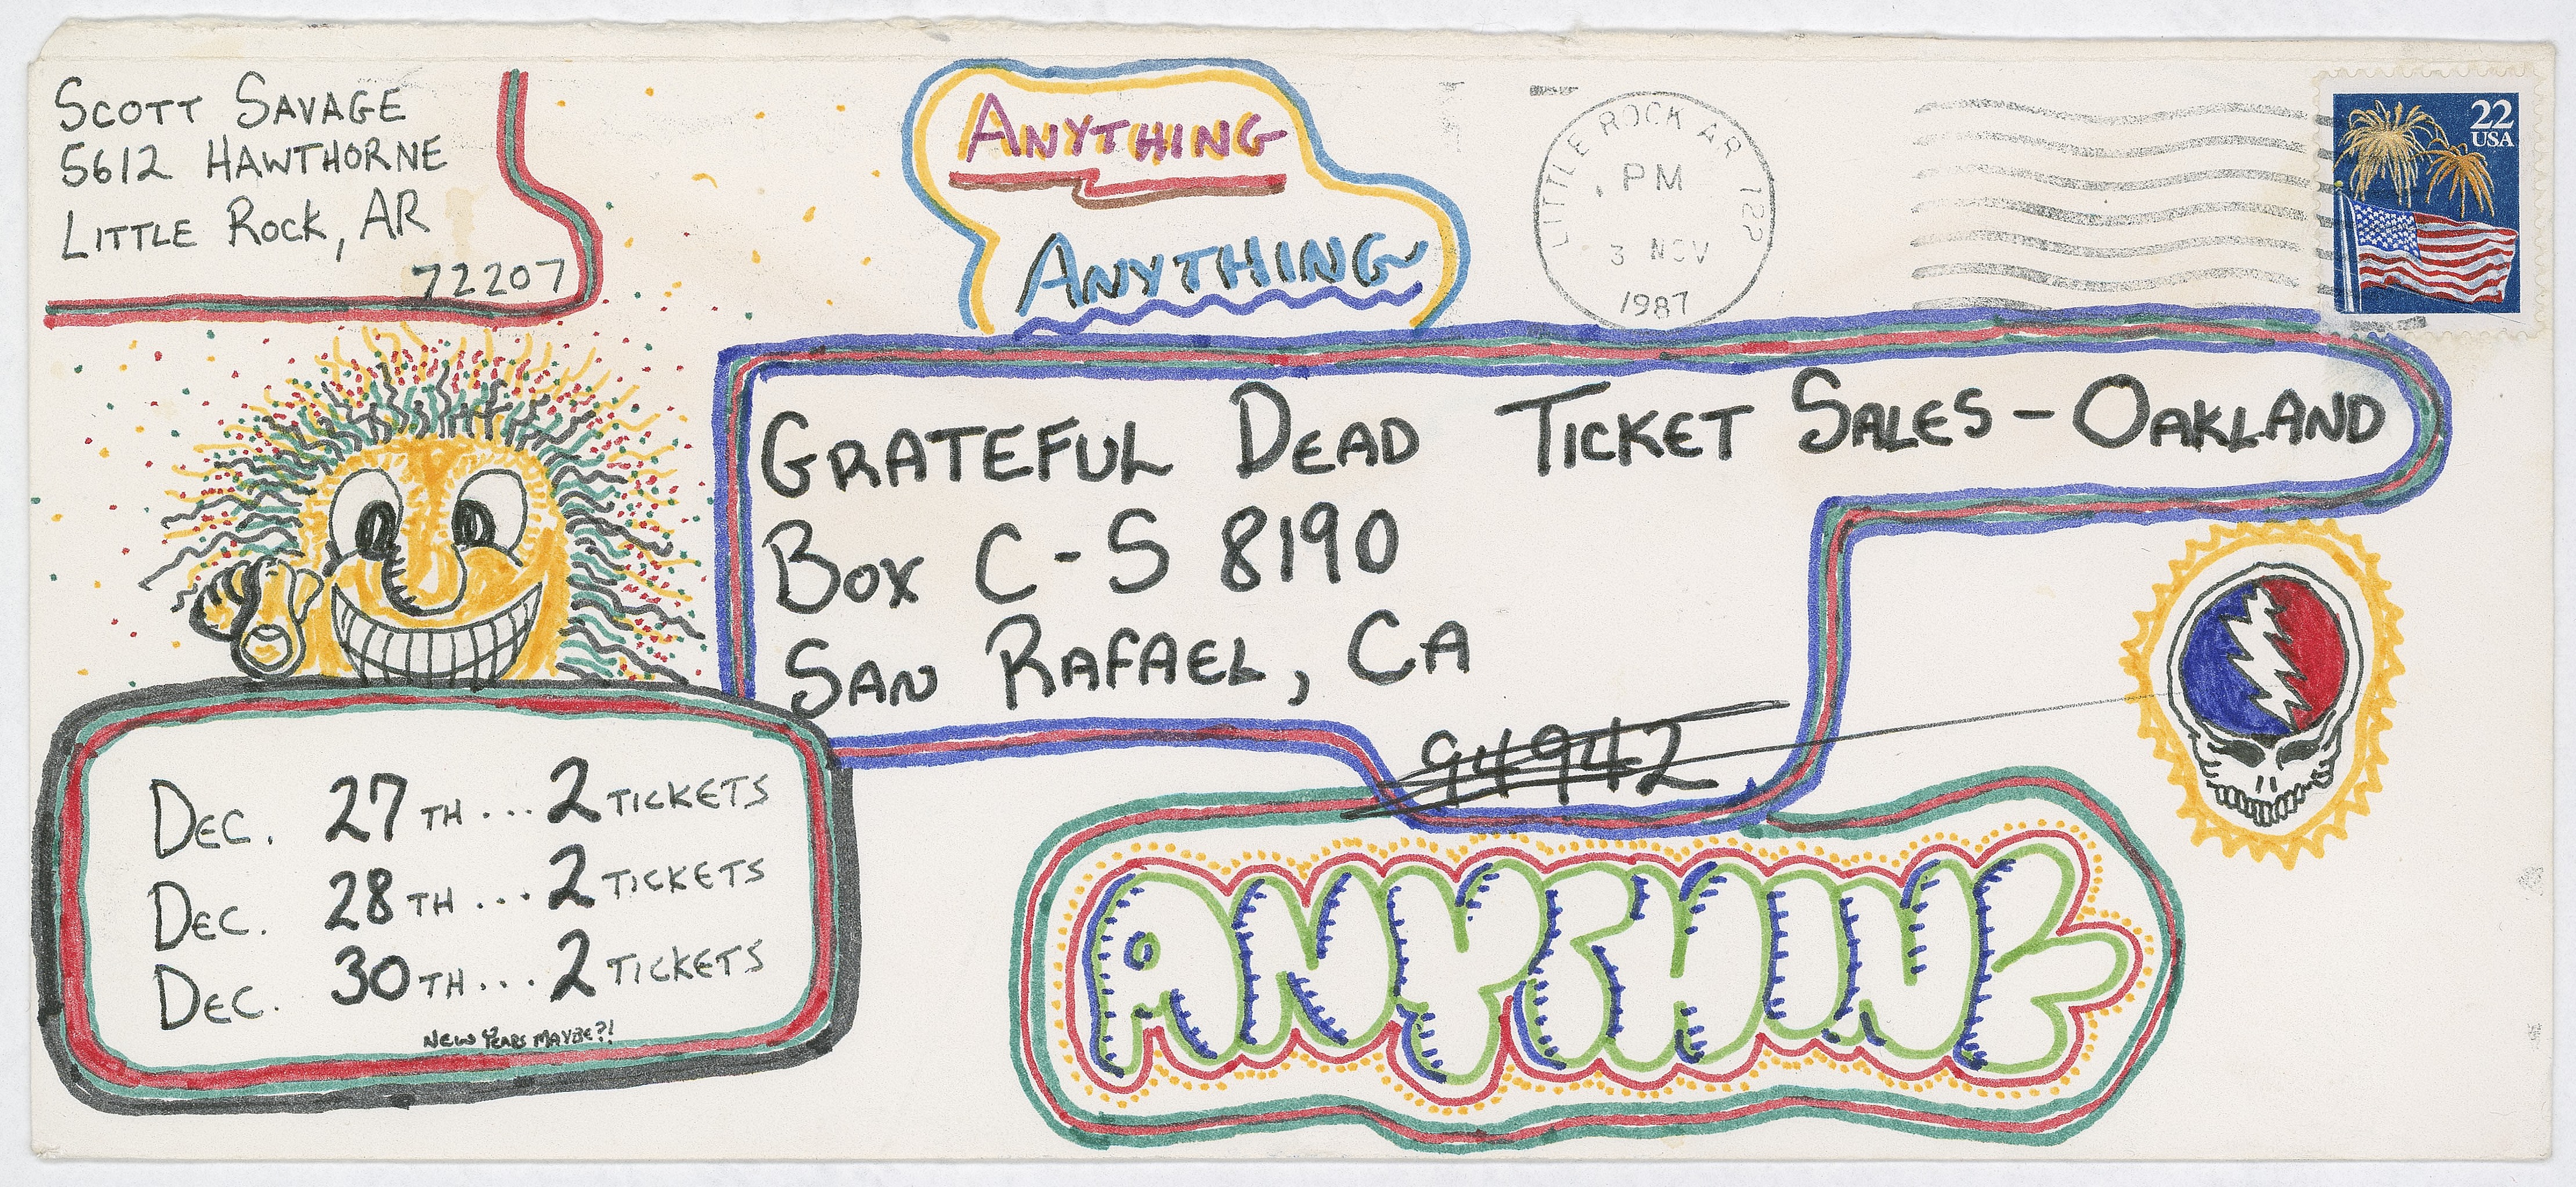 SCOTT SAVAGE
5612 HAWTHORNE
LITTLE ROCK, AR
72207
ANYTHING
ANYTHING
LITTLE ROCK AR 722
PM
3 NOV
1987
22
USA
GRATEFUL DEAD TICKET SALES - OAKLAND
BOX C-S 8190
SAN RAFAEL, CA
94942
DEC. 27TH... 2 TICKETS
DEC. 28TH... 2 TICKETS
DEC. 30TH... 2 TICKETS
NEW YEARS MAYBE?!
ANYTHING